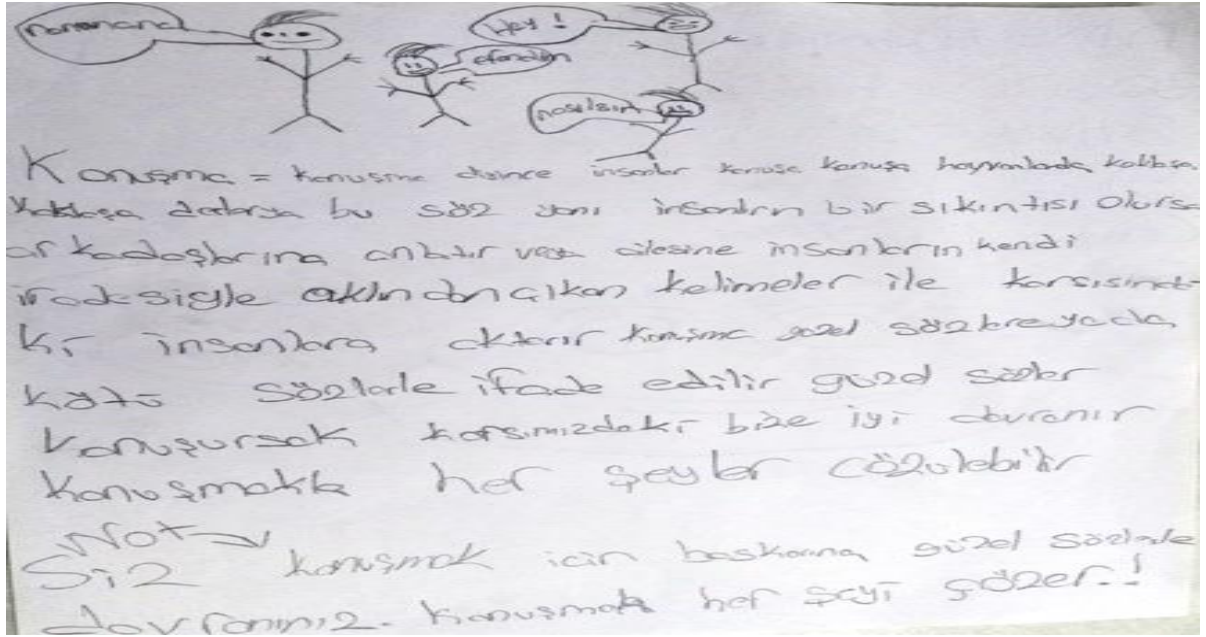 Hey !
efendim
nasılsın
Konuşma = konuşma deince insanlar konuşa konuşa hayvanlarda koklaşa
koklaşa derler bu söz yani insanların bir sıkıntısı olursa
arkadaşlarına anlatır veya ailesine insanların kendi
iradesiyle aklından çıkan kelimeler ile karsısında
ki insanlara aktarır konuşma güzel sözlere yada
kötü sözlerle ifade edilir güzel sözler
konuşursak karsımızdaki bize iyi davranır
konuşmakla her şeyler çözülebilir
Not
Siz konuşmak için başkasına güzel sözlerle
davranınız. konuşmak her şeyi çözer.!